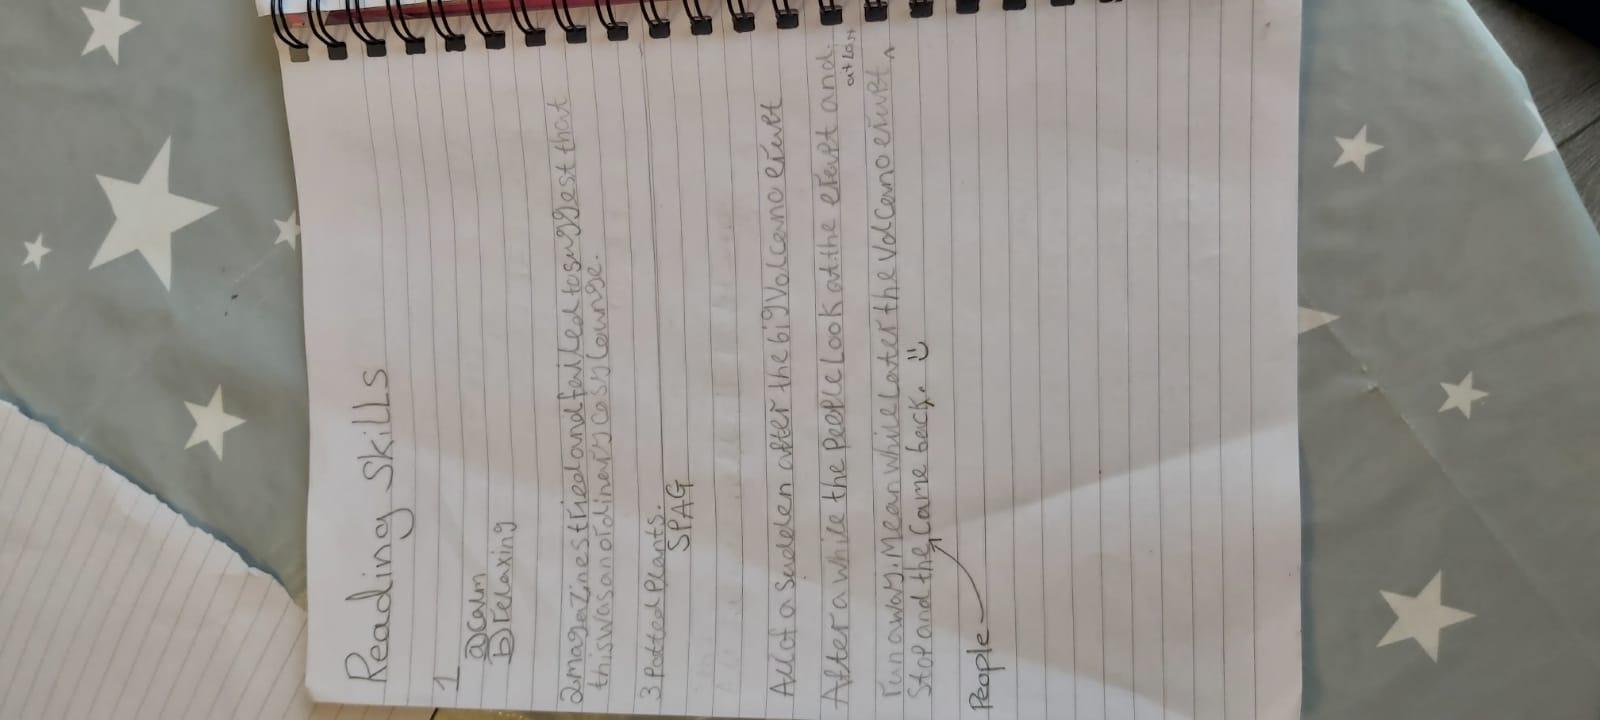 Reading Skills
1
a) calm
b) relaxing
2 magazines tried and failed to suggest that
this was an ordinery cosy lounge.
3 Potted Plants.
SPAG
All of a sudden after the big Volcano erupt
After a while the People Look at the erupt and
run away. Mean while Later the Volcano erupt ^ at Last
Stop and the Came back. :)
People